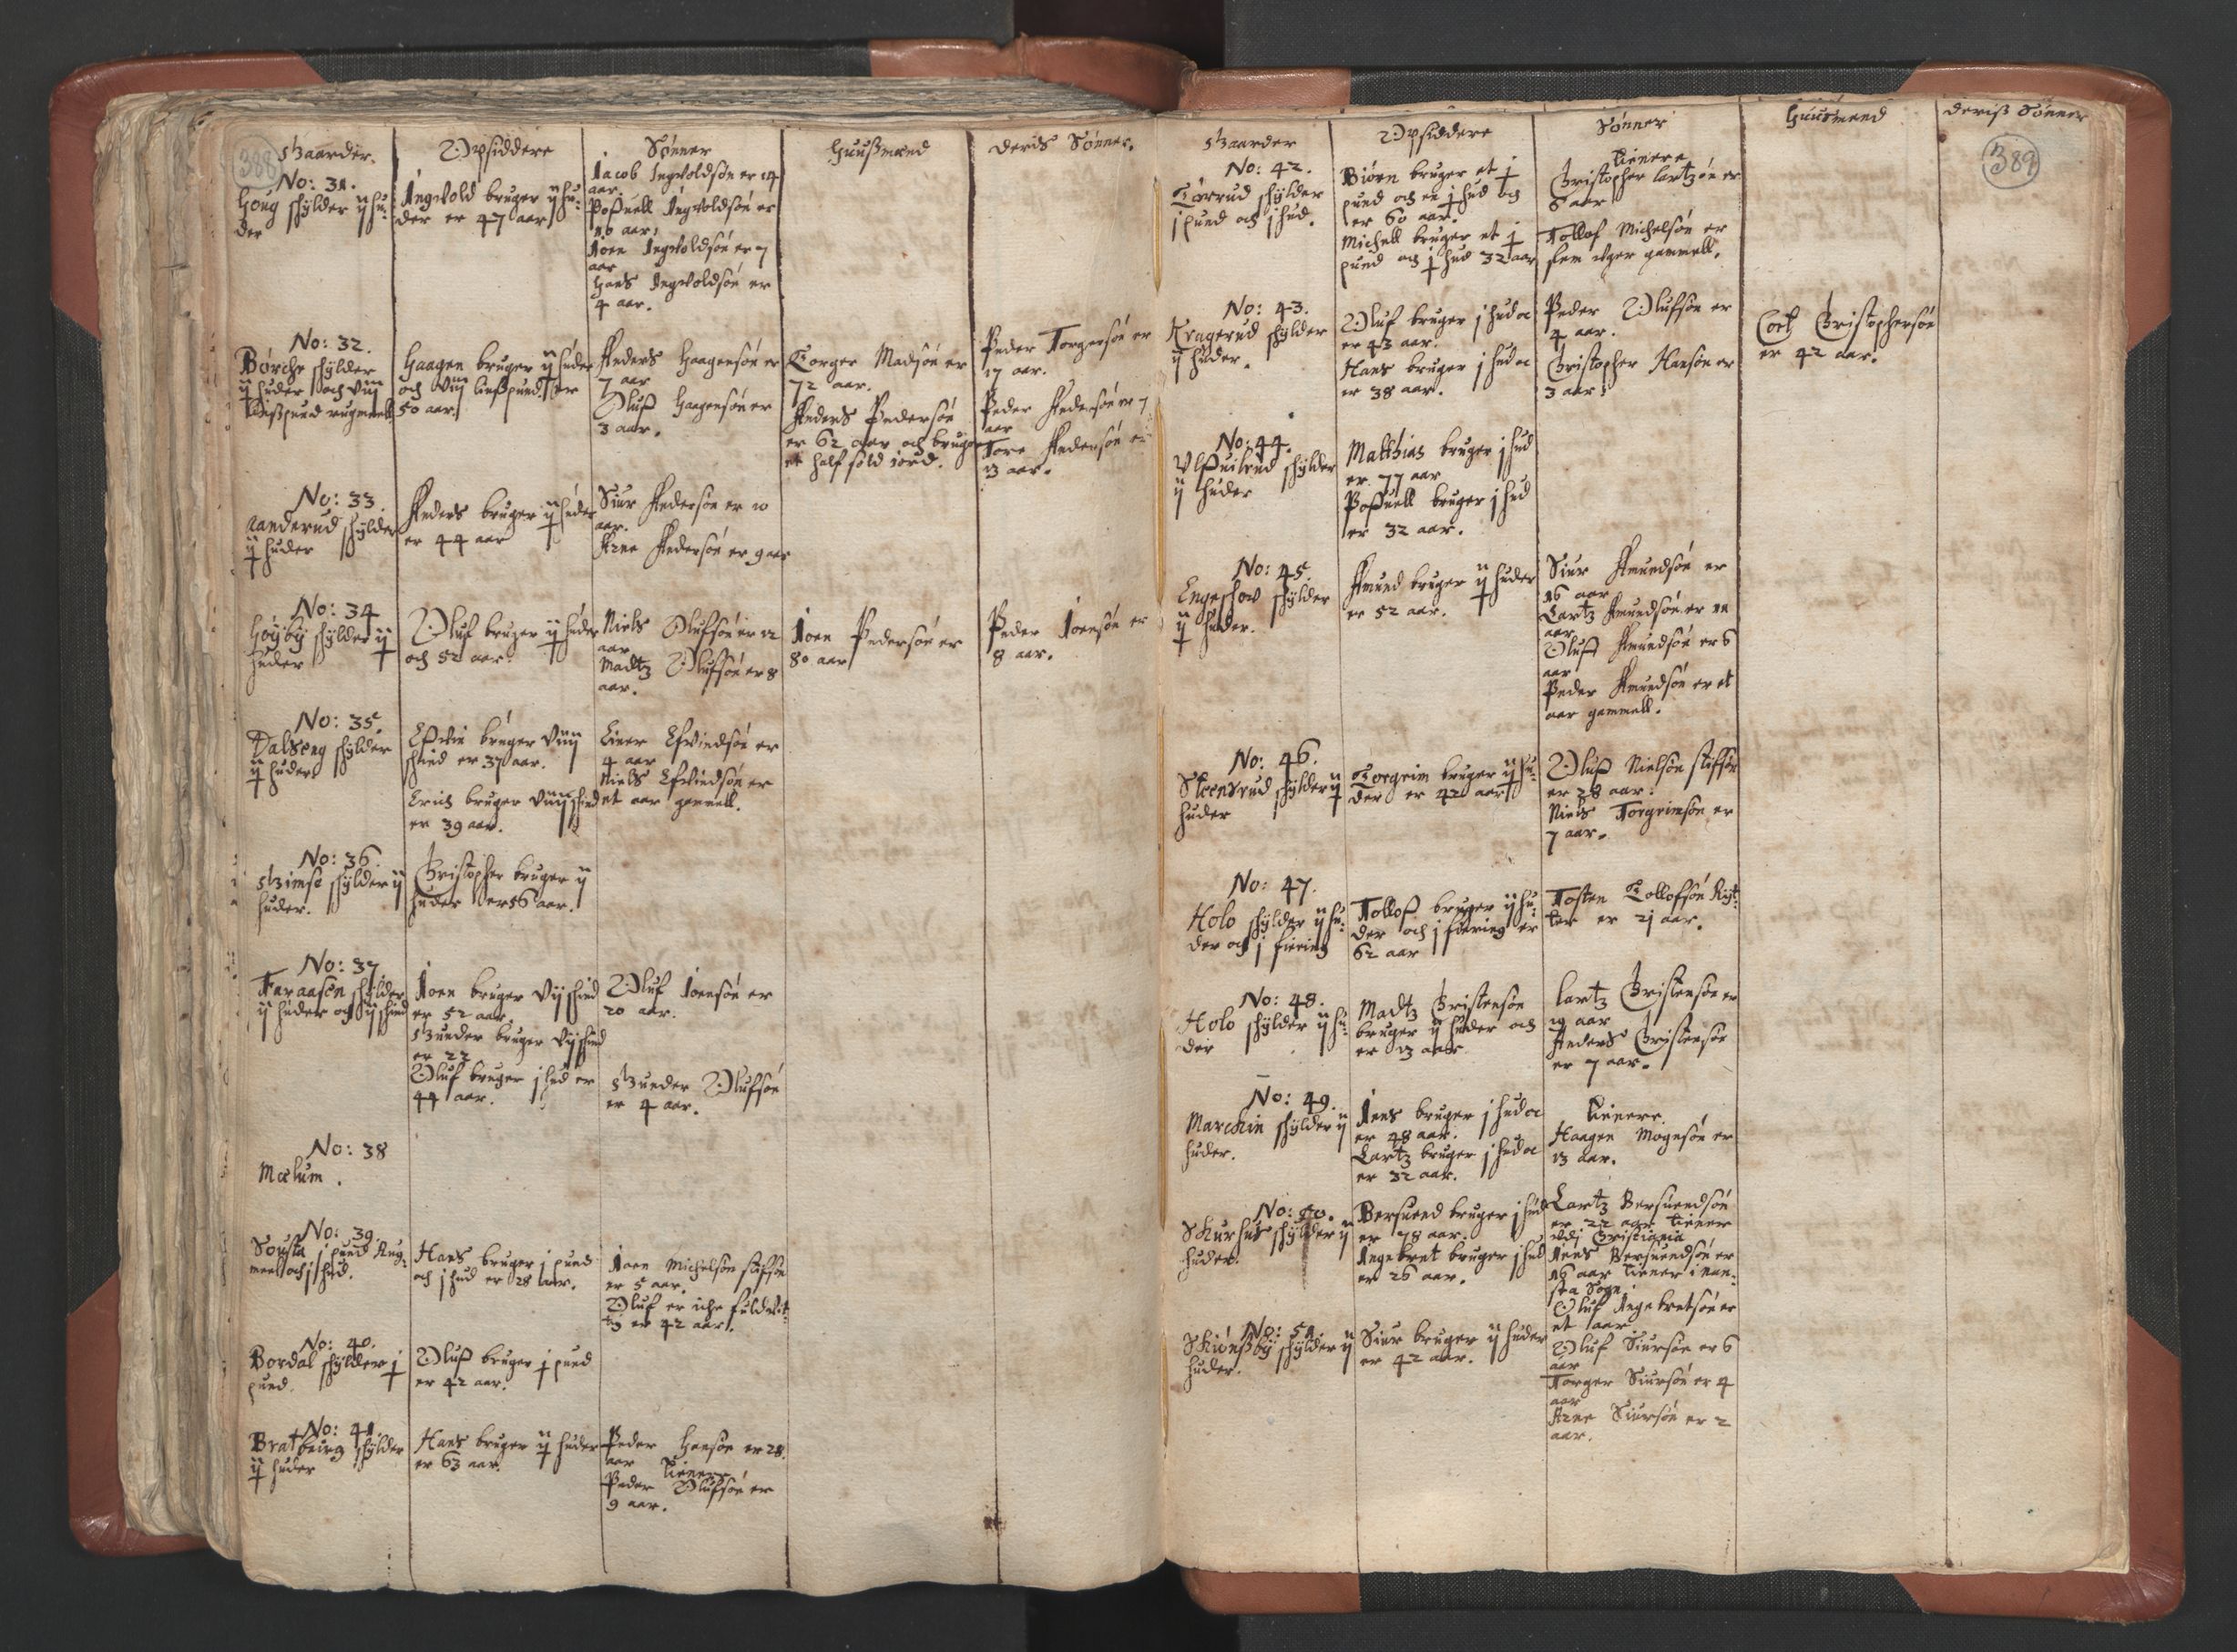 388
Gaarder.
Opsiddere
Sønner
Huußmænd
Deris Sønner.
No: 31.
Houg schylder ij hu-
der
Ingwold bruger ij hu-
der er 47 aar
Jacob Ingwoldsøn er 14
aar.
Poffuell Ingwoldsøn er
10 aar,
Joen Ingwoldsøn er 7
aar
Hans Ingwoldsøn er
4 aar.
No: 32.
Børche schylder
ij huder och viij
lißpund rugmeell
Haagen bruger ij huder
och viij lißpund, er
50 aar
Anders Haagensøn er
7 aar
Oluff Haagensøn er
3 aar.
Torger Madsøn er
72 aar.
Anders Pedersøn
er 62 aar och bruger
et half sold iord.
Peder Torgersøn er
17 aar.
Peder Andersøn er 7
aar
Tore Andersøn er
13 aar.
No: 33.
Randerud schylder
ij huder
Anders bruger ij huder
er 44 aar
Siur Andersøn er 10
aar.
Arne Andersøn er 9 aar
No: 34
Høyby schylder ij
huder
Oluf bruger ij huder
och 52 aar.
Niels Olufsøn er 12
aar
Madtz Oluffsøn er 8
aar.
Joen Pedersøn er
80 aar
Peder Joensøn er
8 aar.
No: 35.
Dalseng schylder
ij huder
Effwin bruger viiij
schind er 37 aar.
Erich bruger viiij schind
er 39 aar.
Einer Efwindsøn er
4 aar
Niels Efwindsøn er
et aar gamell.
No: 36.
Grimse schylder ij
huder.
Christopher bruger ij
huder er 56 aar.
No: 37
Faraasen schylder
ij huder och ij schind
Joen bruger vij schind
er 52 aar.
Gunder bruger vij schind
er 22
Oluf bruger j hud er
44 aar.
Oluf Joensøn er
20 aar.
Gunder Olufsøn
er 4 aar.
No: 38
Mælum.
No: 39.
Sousta j pund Rug-
meel och j hud.
Hans bruger j pund
och j hud er 28 aar.
Joen Michelsøn stifsøn
er 5 aar.
Oluf er iche fuldwit-
tig er 42 aar.
No: 40.
Bordal schylder j
pund.
Oluff bruger j pund
er 42 aar.
No: 41.
Bratbeirg schylder
ij huder
Hans bruger ij huder
er 63 aar.
Peder Hansøn er 28.
aar
tienere
Peder Olufsøn er
9 aar.
389
Gaarder
Opsiddere
Sønner
Huusmend
Deriß Sønner
No: 42.
Tørrud schylder
j pund och j hud.
Biørn bruger et j
pund och en j hud och
er 60 aar.
Michell bruger et j
pund och j hud 32 aar
tienere
Christopher Lartzøn er
6 aar
Tollof Michelsøn er
fem uger gammell.
No: 43.
Kragerud schylder
ij huder.
Oluf bruger j hud oc
er 43 aar.
Hans bruger j hud oc
er 38 aar.
Peder Olufsøn er
4 aar.
Christopher Hansøn er
3 aar.
Cort Christophersøn
er 42 aar.
No: 44.
Ulffuilrud schylder
ij huder
Matthias bruger j hud
er 77 aar
Poffuell bruger j hud
er 32 aar.
No: 45.
Engeschow schylder
ij huder.
Amund bruger ij huder
er 52 aar.
Siur Amundsøn er
16 aar
Lartz Amundsøn er 11
aar
Oluff Amundsøn er 6
aar
Peder Amundsøn er et
aar gammell.
No: 46.
Steensrud schylder ij
huder
Torgrim bruger ij hu-
der er 42 aar
Oluff Nielsøn stiffsøn
er 28 aar.
Niels Torgrimsøn er
7 aar.
No: 47.
Holo schylder ij hu-
der och j fiering
Tolloff bruger ij hu-
der och j fiering er
62 aar
Tosten Tollofsøn Ryt-
ter er 21 aar.
No: 48.
Holo schylder ij hu-
der
Madtz Christensøn
bruger ij huder och
er 13 aar
Lartz Christensøn er
19 aar
Anders Christensøn
er 7 aar.
No: 49.
Marchin schylder ij
huder.
Jens bruger j hud oc
er 48 aar.
Lartz bruger j hud oc
er 32 aar.
tienere.
Haagen Mogensøn er
13 aar.
No: 50.
Skurhus schylder ij
huder.
Bersuend bruger j hud
er 78 aar.
Ingebret bruger j hud
er 26 aar.
Lartz Bersuendsøn
er 22 aar tiener
udj Christiania
Jens Bersuendsøn er
16 aar tiener i
Sogn.
Oluf Ingebretsøn er
et aar
No: 51.
Skiønßby schylder ij
huder.
Siur bruger ij huder
er 42 aar.
Oluf Siursøn er 6
aar
Torger Siursøn er 4
aar
Arne Siursøn er 2
aar.